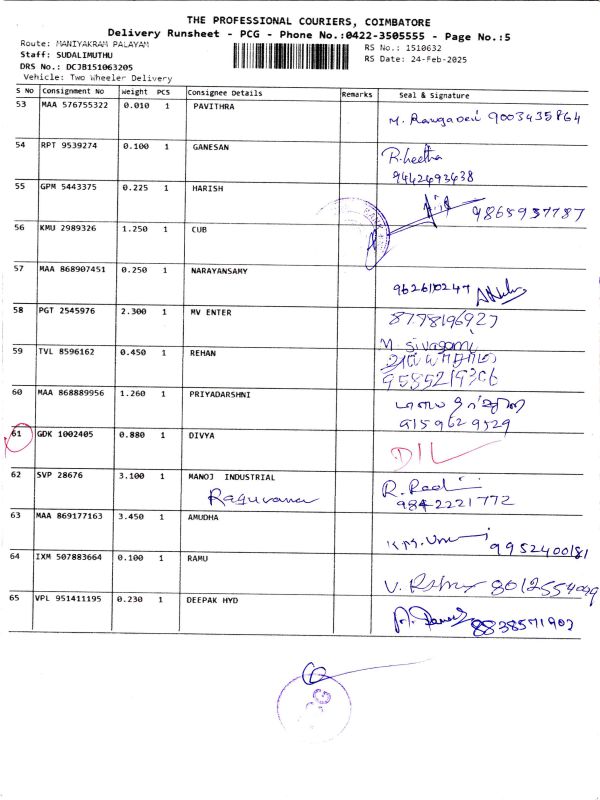 THE PROFESSIONAL COURIERS, COIMBATORE
Delivery Runsheet - PCG - Phone No.:0422-3505555 - Page No.:5
Route: MANIYAKRAM PALAYAM
RS No.: 1510632
Staff: SUDALIMUTHU
RS Date: 24-Feb-2025
DRS No.: DCJB151063205
Vehicle: Two Wheeler Delivery
S No Consignment No Weight PCS Consignee Details Remarks Seal & Signature
53 MAA 576755322 0.010 1 PAVITHRA
M. Rangaveni 9003435864
54 RPT 9539274 0.100 1 GANESAN
R.heetha
9442493438
55 GPM 5443375 0.225 1 HARISH
9865937787
56 KMU 2989326 1.250 1 CUB
57 MAA 868907451 0.250 1 NARAYANSAMY
9626110247
58 PGT 2545976 2.300 1 MV ENTER
8778196927
59 TVL 8596162 0.450 1 REHAN
M. Sivagami
9585219306
60 MAA 868889956 1.260 1 PRIYADARSHNI
9159629529
61 GDK 1002405 0.880 1 DIVYA
D/L
62 SVP 28676 3.100 1 MANOJ INDUSTRIAL
Raguvaran
9842221772
63 MAA 869177163 3.450 1 AMUDHA
9952400181
64 IXM 507883664 0.100 1 RAMU
65 VPL 951411195 0.230 1 DEEPAK HYD
8838571902